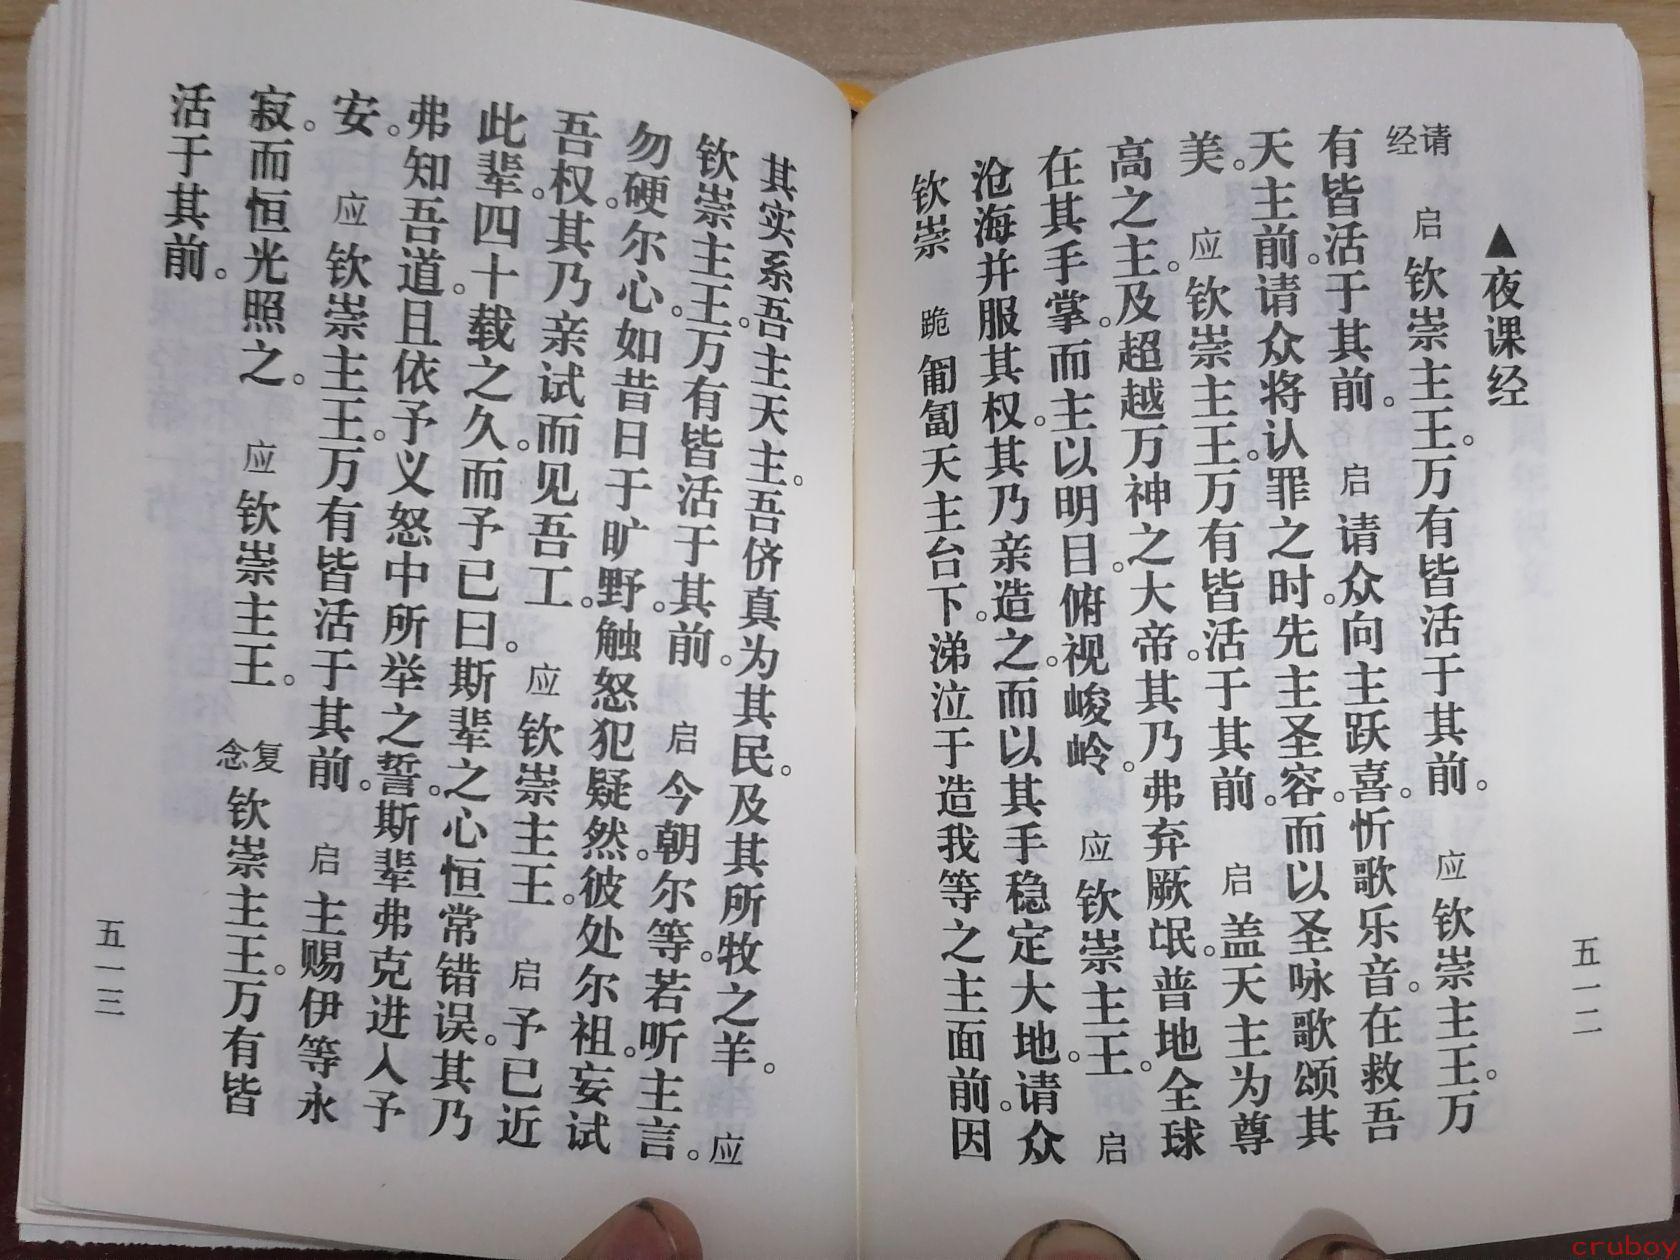 ▲夜课经
请经 启 钦崇主王。万有皆活于其前。 应 钦崇主王。万
有皆活于其前。 启 请众向主跃喜。忻歌乐音。在救吾
天主前。请众将认罪之时。先主圣容。而以圣咏歌颂其
美。 应 钦崇主王。万有皆活于其前。 启 盖天主为尊
高之主。及超越万神之大帝。其乃弗弃厥氓。普地全球
在其手掌。而主以明目俯视峻岭。 应 钦崇主王。 启
沧海并服其权。其乃亲造之。而以其手稳定大地。请众
钦崇 跪 匍匐天主台下。涕泣于造我等之主面前。因
五一二
其实系吾主天主。吾侪真为其民。及其所牧之羊。 应
钦崇主王。万有皆活于其前。 启 今朝尔等。若听主言。
勿硬尔心。如昔日于旷野。触怒犯疑然。彼处尔祖。妄试
吾权。其乃亲试而见吾工。 应 钦崇主王。 启 予已近
此辈四十载之久。而予已曰。斯辈之心恒常错误。其乃
弗知吾道。且依予义怒中所举之誓。斯辈弗克进入予
安。 应 钦崇主王。万有皆活于其前。 启 主赐伊等永
寂。而恒光照之。 应 钦崇主王。 复念 钦崇主王。万有皆
活于其前。
五一三
cruboy